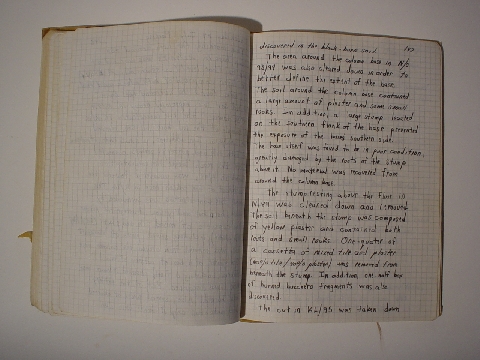 discovered in the black-burnt soil.
The area around the column base in N/O
93/94 was also cleared down in order to
better define the extent of the base.
The soil around the column base contained
a large amount of plaster and some small
rocks. In addition, a large stump located
on the southern flank of the base prevented
the exposure of the base's southern side.
The base itself was found to be in poor condition,
greatly damaged by the roots of the stump
above it. No material was recovered from
around the column base.
The stump resting above the floor in
was cleared down and removed.
The soil beneath the stump was composed
of yellow plaster and contained both
roots and small rocks. One-quarter of
a cassetta of mixed tile and plaster
was removed from
beneath the stump. In addition, one-half box
of burned bucchero fragments was also
discovered.
The cut in KL/95 was taken down